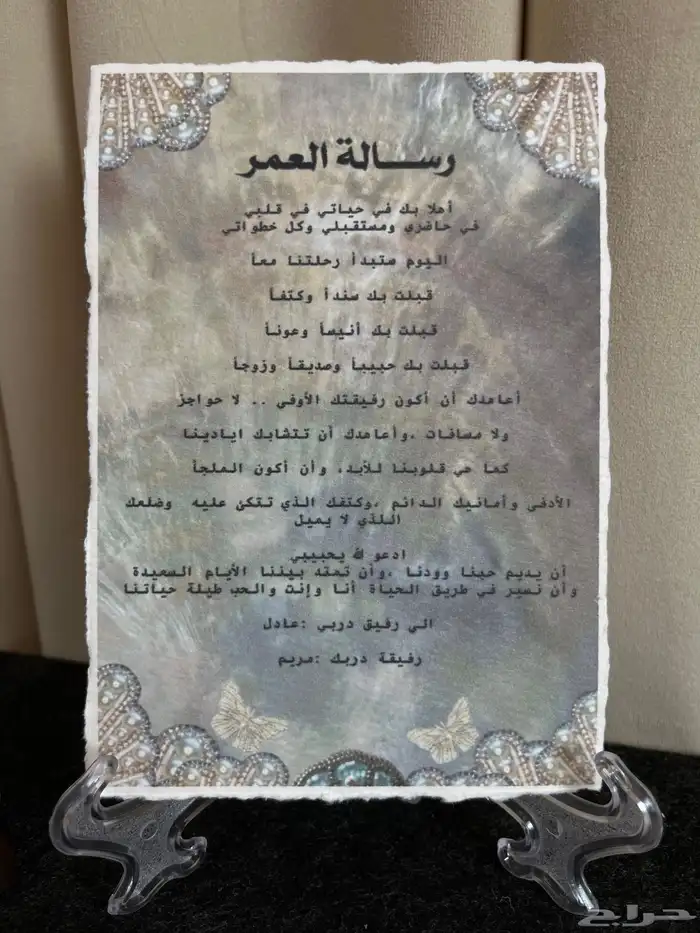 رسالة العمر
أهلا بك في حياتي في قلبي
في حاضري ومستقبلي وكل خطواتي
اليوم ستبدأ رحلتنا معاً
قبلت بك سنداً وكتفاً
قبلت بك أنيساً وعوناً
قبلت بك حبيباً وصديقاً وزوجاً
أعاهدك أن أكون رفيقتك الأوفى .. لا حواجز
ولا مسافات ،وأعاهدك أن تتشابك ايادينا
كما هي قلوبنا للأبد، وأن أكون الملجأ
الأدفى وأمانيك الدائم ،وكتفك الذي تتكئ عليه وضلعك
اللذي لا يميل
ادعو لله يحبيبي
أن يديم حبنا وودنا ،وأن تمتد بيننا الأيام السعيدة
وأن نسير في طريق الحياة أنا وإنت والحب طيلة حياتنا
الى رفيق دربي :عادل
رفيقة دربك :مريم
حراج